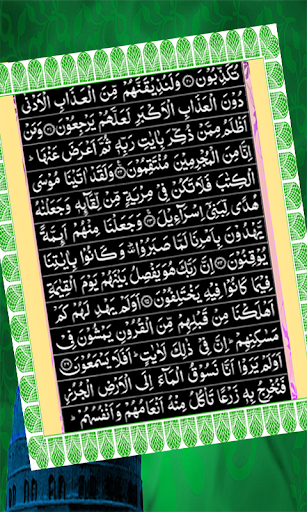 تُكَذِّبُوْنَ ۝۲۰ وَلَنُذِيْقَنَّهُمْ مِّنَ الْعَذَابِ الْاَدْنٰى
دُوْنَ الْعَذَابِ الْاَكْبَرِ لَعَلَّهُمْ يَرْجِعُوْنَ ۝۲۱ وَمَنْ
اَظْلَمُ مِمَّنْ ذُكِّرَ بِاٰيٰتِ رَبِّهٖ ثُمَّ اَعْرَضَ عَنْهَا ؕ
اِنَّا مِنَ الْمُجْرِمِيْنَ مُنْتَقِمُوْنَ ۝۲۲ وَلَقَدْ اٰتَيْنَا مُوْسَى
الْكِتٰبَ فَلَا تَكُنْ فِيْ مِرْيَةٍ مِّنْ لِّقَآئِهٖ وَجَعَلْنٰهُ
هُدًى لِّبَنِيْٓ اِسْرَآءِيْلَ ۝۲۳ وَجَعَلْنَا مِنْهُمْ اَئِمَّةً
يَّهْدُوْنَ بِاَمْرِنَا لَمَّا صَبَرُوْا ؕ وَكَانُوْا بِاٰيٰتِنَا
يُوْقِنُوْنَ ۝۲۴ اِنَّ رَبَّكَ هُوَ يَفْصِلُ بَيْنَهُمْ يَوْمَ الْقِيٰمَةِ
فِيْمَا كَانُوْا فِيْهِ يَخْتَلِفُوْنَ ۝۲۵ اَوَلَمْ يَهْدِ لَهُمْ كَمْ
اَهْلَكْنَا مِنْ قَبْلِهِمْ مِّنَ الْقُرُوْنِ يَمْشُوْنَ فِيْ
مَسٰكِنِهِمْ ؕ اِنَّ فِيْ ذٰلِكَ لَاٰيٰتٍ ؕ اَفَلَا يَسْمَعُوْنَ ۝۲۶
اَوَلَمْ يَرَوْا اَنَّا نَسُوْقُ الْمَآءَ اِلَى الْاَرْضِ الْجُرُزِ
فَنُخْرِجُ بِهٖ زَرْعًا تَاْكُلُ مِنْهُ اَنْعَامُهُمْ وَاَنْفُسُهُمْ ؕ